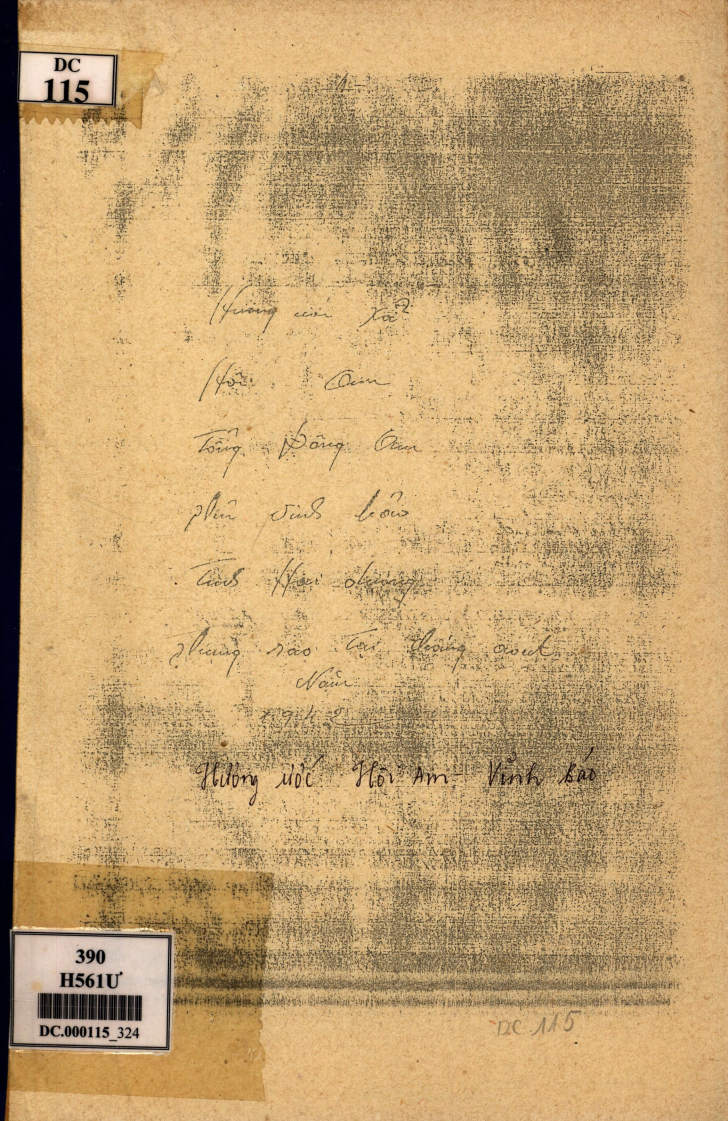 DC
115
Hương ước Xã
Hội Am
Tổng Đông Am
Phủ Vĩnh bảo
Tỉnh Hải dương
Phụng sao Tại tháng août
Năm
1942
Hương ước Hội Am - Vĩnh Bảo
390
H561Ư
DC.000115_324
DC 115